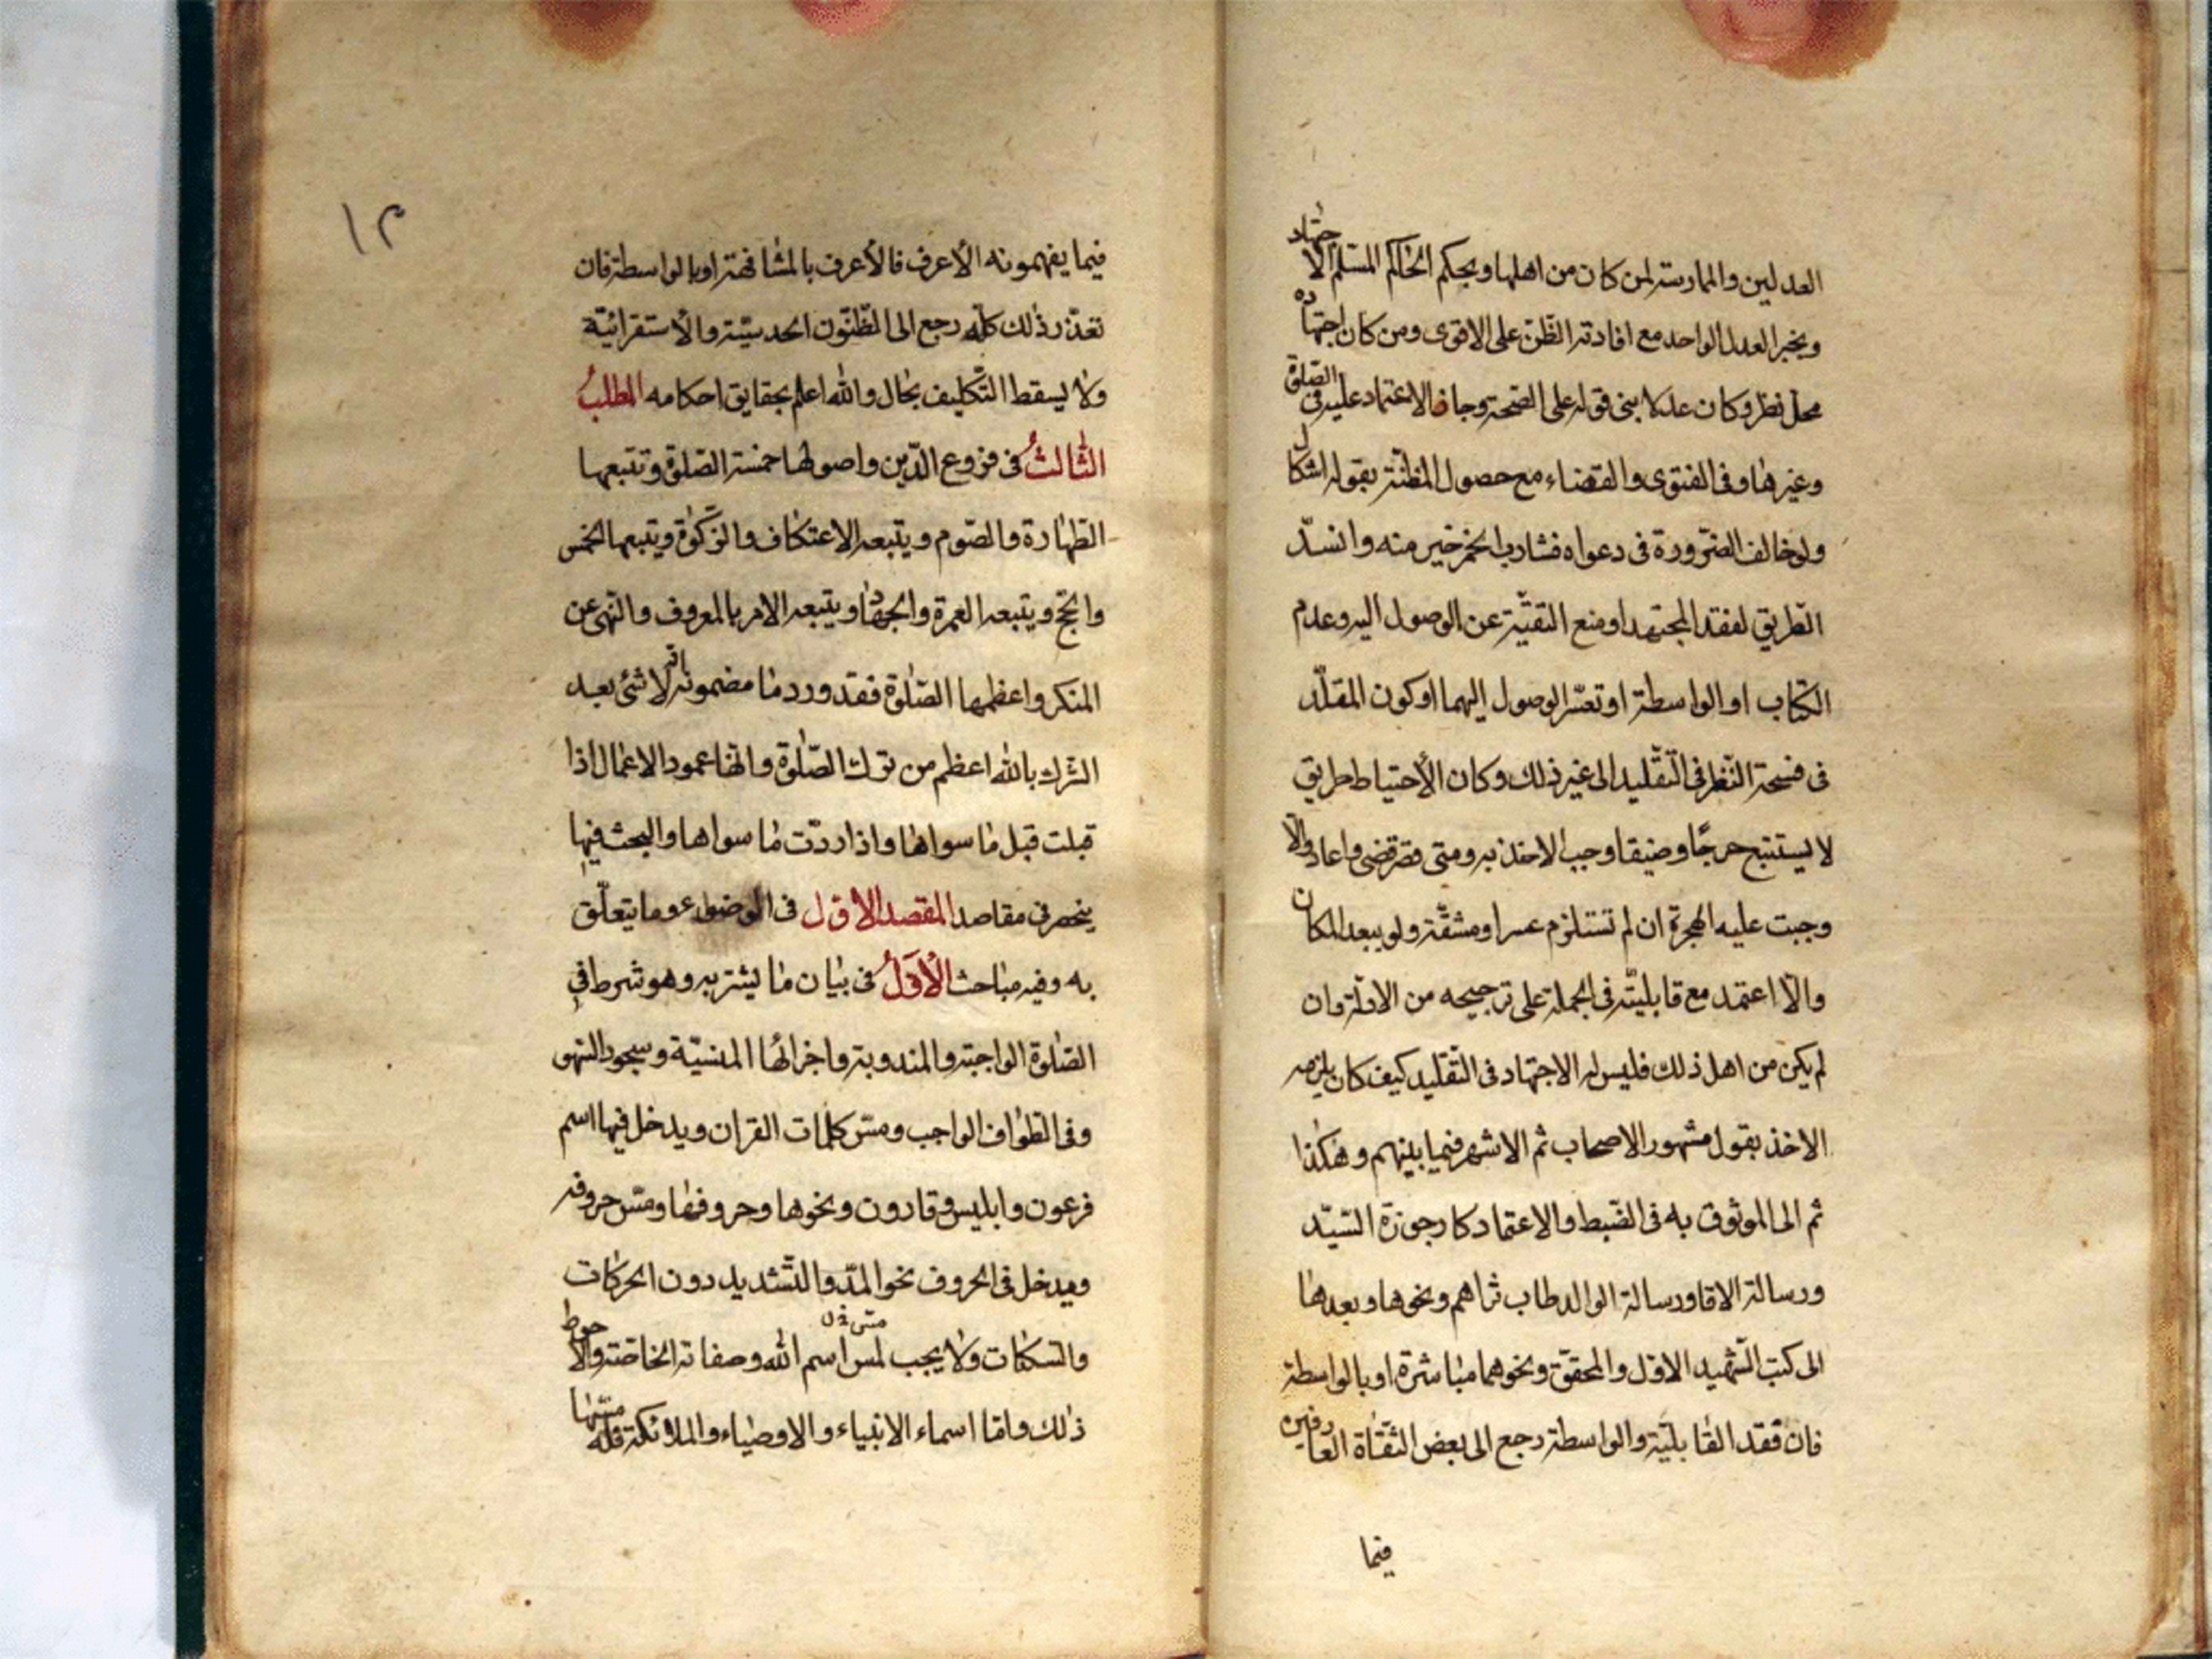 العدلين والممارسة لمن كان من اهلها وبحكم الحاكم المسلم الاجتهاد
وبخبر العدل الواحد مع افادته الظن على الاقوى ومن كان اجتهاده
محل نظر وكان عدلا بنى قوله على الصحة وجاز الاعتماد عليه في الصلوة
وغيرها وفي الفتوى والقضاء مع حصول المظنة بقوله اشكال
ولو خالف الضرورة في دعواه فشارب الخمر خير منه وانسد
الطريق لفقد المجتهد او منع التقية عن الوصول اليه وعدم
الكتاب او الواسطة او تعسر الوصول اليهما او كون المقلد
في فسحة النظر في التقليد الى غير ذلك وكان الأحتياط طريق
لا يستتبع حرجًا وضيقا وجب الاخذ به ومتى قصر قضى واعاد والا
وجبت عليه الهجرة ان لم تستلزم عسرا ومشقة ولو ببعد المكان
والا اعتمد مع قابليته في الجملة على ترجيحه من الادلة وان
لم يكن من اهل ذلك فليس له الاجتهاد في التقليد كيف كان يلزمه
الاخذ بقول مشهور الاصحاب ثم الاشهر فيما بينهم وهكذا
ثم الى الموثوق به في الضبط والاعتماد كارجوزة السيد
ورسالة الاقا ورسالة الوالد طاب ثراهم ونحوها وبعدها
الى كتب الشهيد الاول والمحقق ونحوهما مباشرة او بالواسطة
فان فقد القابلية والواسطة رجع الى بعض الثقاة العارفين
فيما
١٢
فيما يفهمونه الأعرف فالأعرف بالمشافهة او بالواسطة فان
تعذر ذلك كله رجع الى الظنون الحدسية والأستقرائية
ولا يسقط التكليف بحال والله اعلم بحقايق احكامه المطلب
الثالث في فروع الدين واصولها خمسة الصلوة وتتبعها
الطهارة والصوم ويتبعه الاعتكاف والزكوة ويتبعها الخمس
والحج ويتبعه العمرة والجهاد ويتبعه الامر بالمعروف والنهى عن
المنكر واعظمها الصلوة فقد ورد ما مضمونه انه لا شئ بعد
الشرك بالله اعظم من ترك الصلوة وانها عمود الاعمال اذا
قبلت قبل ما سواها واذا ردت رد ما سواها والبحث فيها
ينحصر في مقاصد المقصد الاول في الوضوء وما يتعلق
به وفيه مباحث الأول في بيان ما يشترط به وهو شرط في
الصلوة الواجبة والمندوبة واجزائها المنسية وسجود السهو
وفي الطواف الواجب ومس كلمات القران ويدخل فيها اسم
فرعون وابليس وقارون ونحوها وحروفها ومس حروفه
ويدخل في الحروف نحو المد والتشديد دون الحركات
والسكنات ولا يجب لمس اسم الله وصفاته الخاصة والاحوط
ذلك واما اسماء الانبياء والاوصياء والملائكة فله مسها